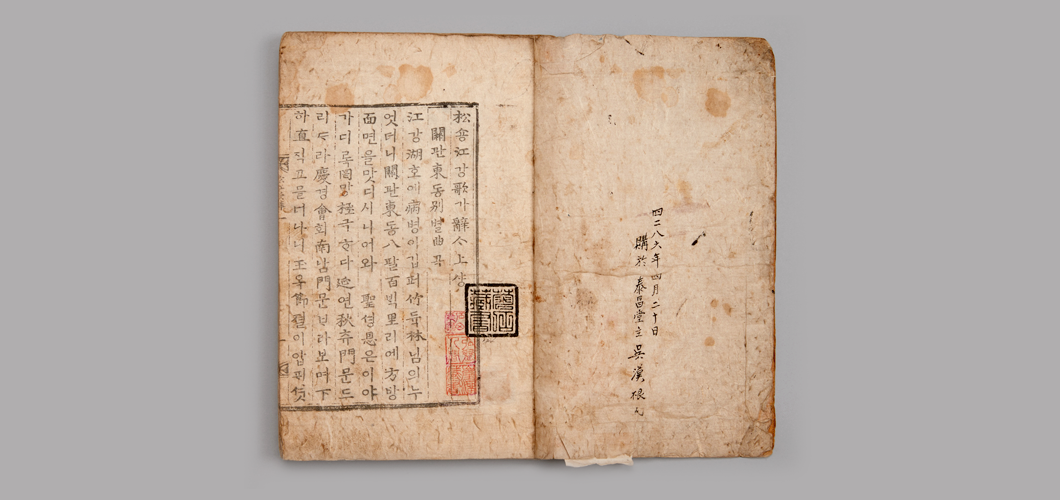 四二八六年四月二十日
購於 泰昌堂主 吳漢根氏
松숑江강歌가辭ᄉᆞ上샹
關관東동別별曲곡
江강湖호애病병이깁퍼竹듁林님의누
엇더니關관東동八팔百ᄇᆡᆨ里리에方방
面면을맛디시니어와 聖셩恩은이야
가디록罔망極극ᄒᆞ다延연秋츄門문드
리ᄃᆞ라慶경會회南남門문ᄇᆞ라보며下
하直직고믈너나니玉옥節졀이압ᄑᆡ셧
藏書